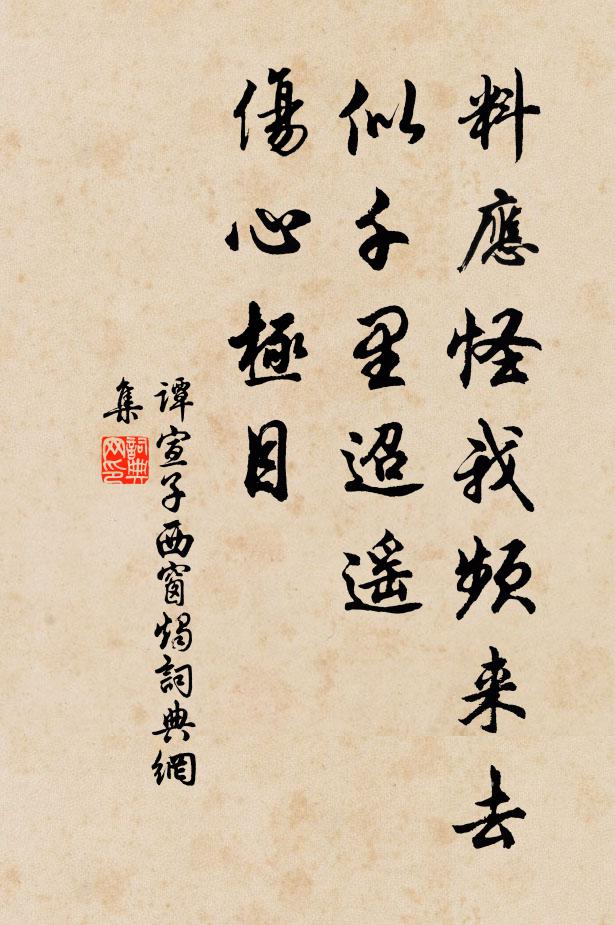 料應怪我頻来去
似千里迢遥
傷心極目
譚宣子西窗燭詞典網
集
詞典網印